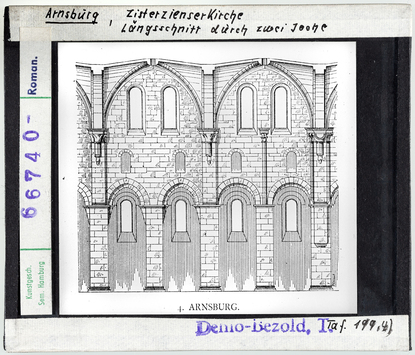 Arnsburg, Zisterzienserkirche
Längsschnitt durch zwei Joche
Roman.
66740-
Kunstgesch.
Sem. Hamburg
4. ARNSBURG.
Demo-Bezold, T. (Taf. 199,4)